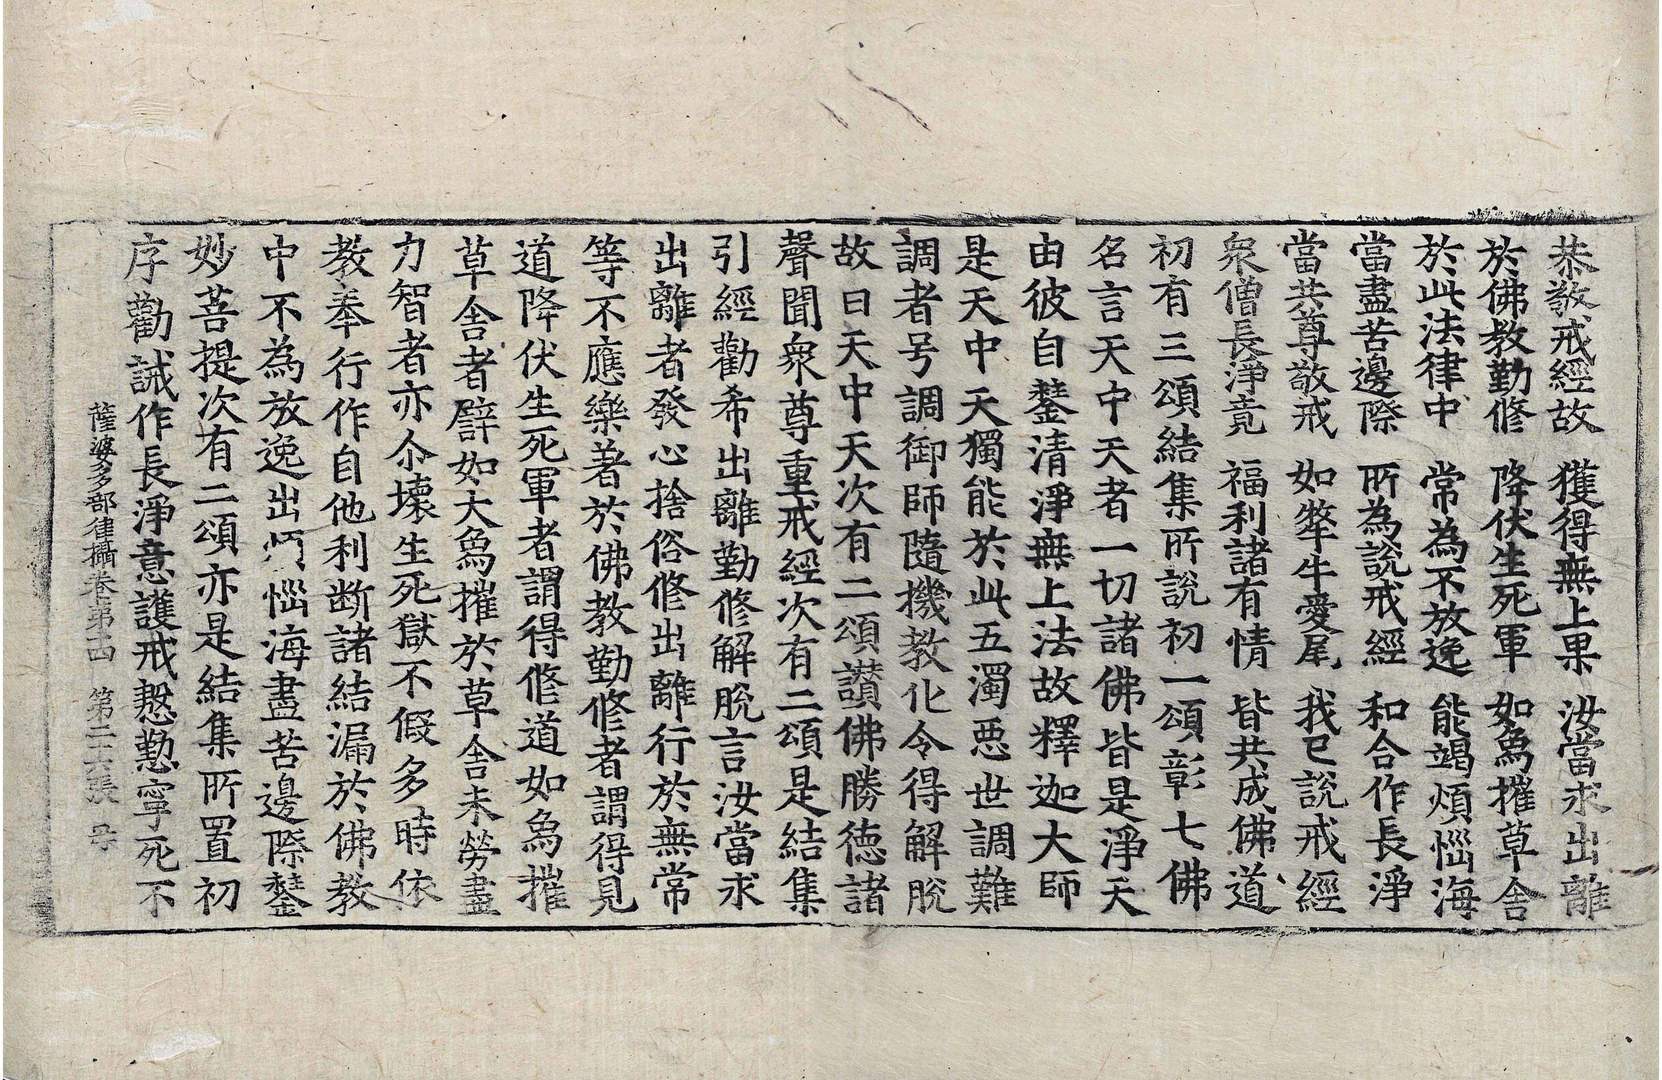 恭敬戒經故　獲得無上果　汝當求出離
於佛教勤修　降伏生死軍　如象摧草舍
於此法律中　常為不放逸　能竭煩惱海
當盡苦邊際　所為說戒經　和合作長淨
當共尊敬戒　如犛牛愛尾　我已說戒經
衆僧長淨竟　福利諸有情　皆共成佛道
初有三頌結集所說初一頌彰七佛
名言天中天者一切諸佛皆是淨天
由彼自鏊清淨無上法故釋迦大師
是天中天獨能於此五濁惡世調難
調者号調御師隨機教化令得解脫
故曰天中天次有二頌讃佛勝德諸
聲聞衆尊重戒經次有二頌是結集
引經勸希出離勤修解脫言汝當求
出離者發心捨俗修出離行於無常
等不應樂著於佛教勤修者謂得見
道降伏生死軍者謂得修道如象摧
草舍者譬如大象摧於草舍未勞盡
力智者亦尒壞生死獄不假多時依
教奉行作自他利断諸結漏於佛教
中不為放逸出惱海盡苦邊際鏊
妙菩提次有二頌亦是結集所置初
序勸誡作長淨意護戒慇懃寧死不
薩婆多部律攝卷第十四　第二十六張　母